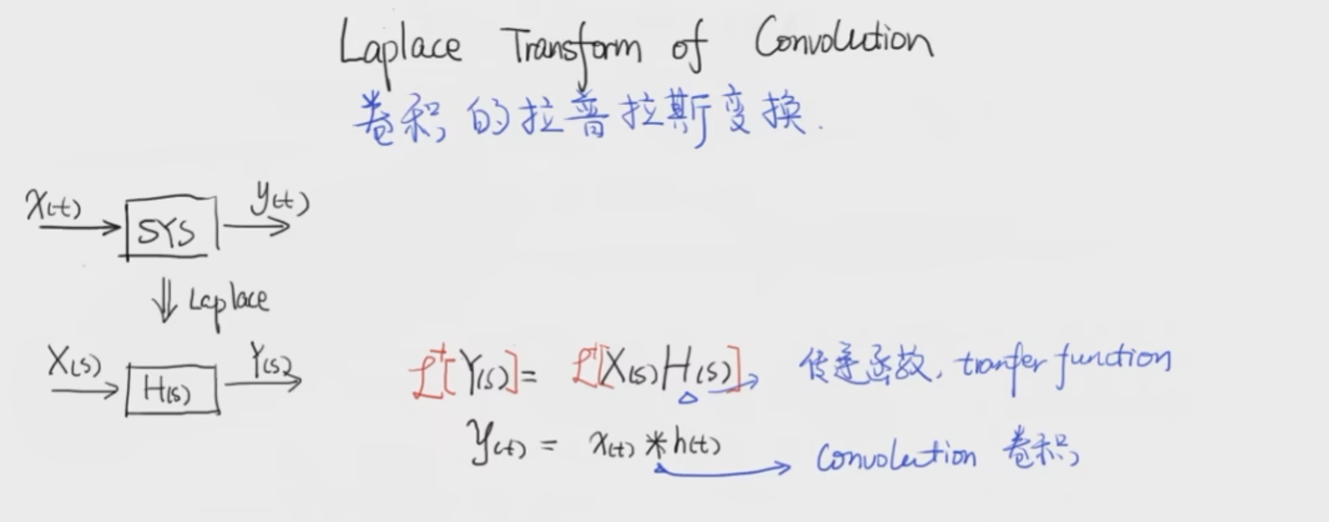 Laplace Transform of Convolution
卷积的拉普拉斯变换.
x(t) SYS y(t)
⇓ Laplace
X(s) H(s) Y(s)
ℒ⁻¹[Y(s)] = ℒ⁻¹[X(s)H(s)] → 传递函数, tranfer function
y(t) = x(t) * h(t) → Convolution 卷积